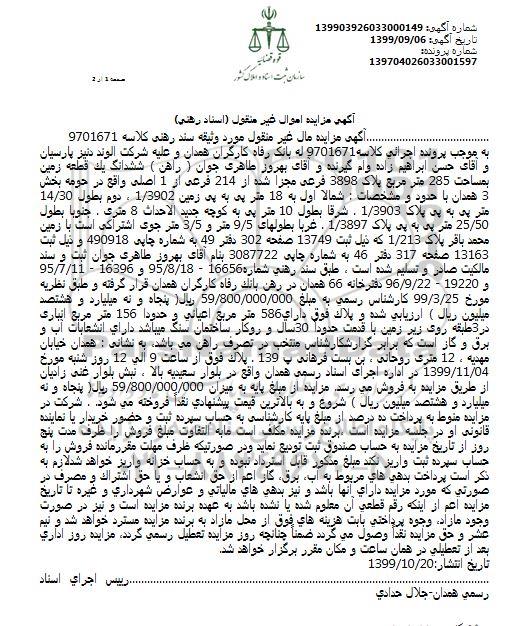 شماره آگهی: 139903926033000149
تاریخ آگهی: 1399/09/06
شماره پرونده:
139704026033001597
قوه قضاییه
سازمان ثبت اسناد و املاک کشور
صفحه 1 از 2
آگهی مزایده اموال غیر منقول (اسناد رهنی)
آگهی مزایده مال غیر منقول مورد وثیقه سند رهنی کلاسه 9701671
به موجب پرونده اجرائی کلاسه9701671 له بانک رفاه کارگران همدان و علیه شرکت الوند دنیز پارسیان
و آقای حسن ابراهیم زاده وام گیرنده و آقای بهروز طاهری جوان ( راهن ) ششدانگ یك قطعه زمین
بمساحت 285 متر مربع پلاک 3898 فرعی مجزا شده از 214 فرعی از 1 اصلی واقع در حومه بخش
3 همدان با حدود و مشخصات : شمالا اول به 18 متر پی به پی زمین 1/3902 ، دوم بطول 14/30
متر پی به پی پلاک 1/3903 . شرقا بطول 10 متر پی به کوچه جدید الاحداث 8 متری . جنوبا بطول
25/50 متر پی به پی پلاک 1/3897 . غربا بطولهای 9/5 متر و 3/5 متر جوی اشتراکی است با زمین
محمد باقر پلاک 1/213 که ذیل ثبت 13749 صفحه 302 دفتر 49 به شماره چاپی 490918 و ذیل ثبت
13163 صفحه 317 دفتر 46 به شماره چاپی 3087722 بنام آقای بهروز طاهری جوان ثبت و سند
مالکیت صادر و تسلیم شده است ، طبق سند رهنی شماره16656 - 95/8/18 و 16396 - 95/7/11
و 19220 - 96/9/22 دفترخانه 66 همدان در رهن بانك رفاه کارگران همدان قرار گرفته و طبق نظریه
مورخ 99/3/25 کارشناس رسمی به مبلغ 59/800/000/000 ریال( پنجاه و نه میلیارد و هشتصد
میلیون ریال ) ارزیابی شده و پلاک فوق دارای586 متر مربع اعیانی و حدودا 156 متر مربع انباری
در3طبقه روی زیر زمین با قدمت حدودا 30سال و روکار ساختمان سنگ میباشد دارای انشعابات آب و
برق و گاز است که برابر گزارشکارشناس منتخب در تصرف راهن می باشد، به نشانی : همدان خیابان
مهدیه ، 12 متری روحانی ، بن بست فرهانی پ 139 . پلاك فوق از ساعت 9 الی 12 روز شنبه مورخ
1399/11/04 در اداره اجرای اسناد رسمی همدان واقع در بلوار سعیدیه بالا ، نبش بلوار غنی زادیان
از طریق مزایده به فروش می رسد. مزایده از مبلغ پایه به میزان 59/800/000/000 ریال( پنجاه و نه
میلیارد و هشتصد میلیون ریال ) شروع و به بالاترین قیمت پیشنهادی نقدا فروخته می شود. ، شرکت در
مزایده منوط به پرداخت ده درصد از مبلغ پایه کارشناسی به حساب سپرده ثبت و حضور خریدار یا نماینده
قانونی او در جلسه مزایده است. برنده مزایده مکلف است مابه التفاوت مبلغ فروش را ظرف مدت پنج
روز از تاریخ مزایده به حساب صندوق ثبت تودیع نماید ودر صورتیکه ظرف مهلت مقررمانده فروش را به
حساب سپرده ثبت واریز نکند مبلغ مذکور قابل استرداد نبوده و به حساب خزانه واریز خواهد شدلازم به
ذکر است پرداخت بدهی های مربوط به آب، برق، گاز اعم از حق انشعاب و یا حق اشتراك و مصرف در
صورتي که مورد مزایده دارای آنها باشد و نیز بدهی های مالیاتی و عوارض شهرداری و غیره تا تاریخ
مزایده اعم از اینکه رقم قطعی آن معلوم شده یا نشده باشد به عهده برنده مزایده است و نیز در صورت
وجود مازاد، وجوه پرداختی بابت هزینه های فوق از محل مازاد به برنده مزایده مسترد خواهد شد و نیم
عشر و حق مزایده نقداً وصول می گردد ضمناً چنانچه روز مزایده تعطیل رسمی گردد، مزایده روز اداری
بعد از تعطیلی در همان ساعت و مکان مقرر برگزار خواهد شد.
تاریخ انتشار:1399/10/20
رییس اجرای اسناد
رسمی همدان-جلال حدادی